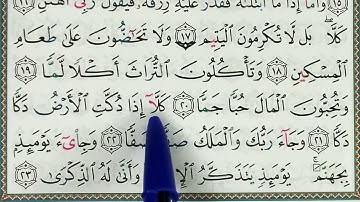 ١٥ وَأَمَّآ إِذَا مَا ٱبْتَلَىٰهُ فَقَدَرَ عَلَيْهِ رِزْقَهُۥ فَيَقُولُ رَبِّىٓ أَهَٰنَنِ ١٦
كَلَّا ۖ بَل لَّا تُكْرِمُونَ ٱلْيَتِيمَ ١٧ وَلَا تَحَٰٓضُّونَ عَلَىٰ طَعَامِ
ٱلْمِسْكِينِ ١٨ وَتَأْكُلُونَ ٱلتُّرَاثَ أَكْلًا لَّمًّا ١٩
وَتُحِبُّونَ ٱلْمَالَ حُبًّا جَمًّا ٢٠ كَلَّآ إِذَا دُكَّتِ ٱلْأَرْضُ دَكًّا
٢١ وَجَآءَ رَبُّكَ وَٱلْمَلَكُ صَفًّا ٢٢ وَجِا۟ىٓءَ يَوْمَئِذٍۭ
بِجَهَنَّمَ ۚ يَوْمَئِذٍ يَتَذَكَّرُ وَأَنَّىٰ لَهُ ٱلذِّكْرَىٰ ٢٣